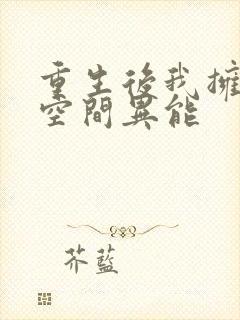 重生後我擁
空間異能
芥藍